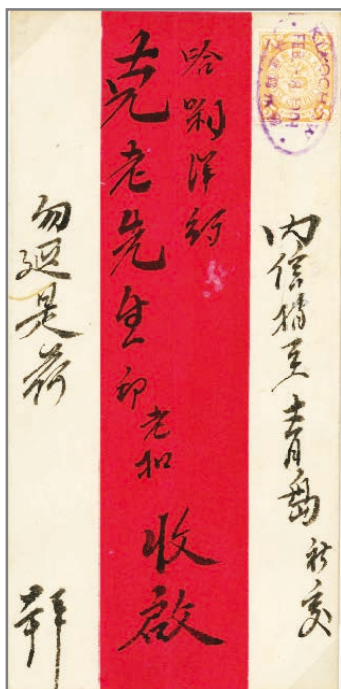 FEB -8
内信捎至青島 祈交
哈 洋行
克老先生 印 老扣 收啟
勿延是荷